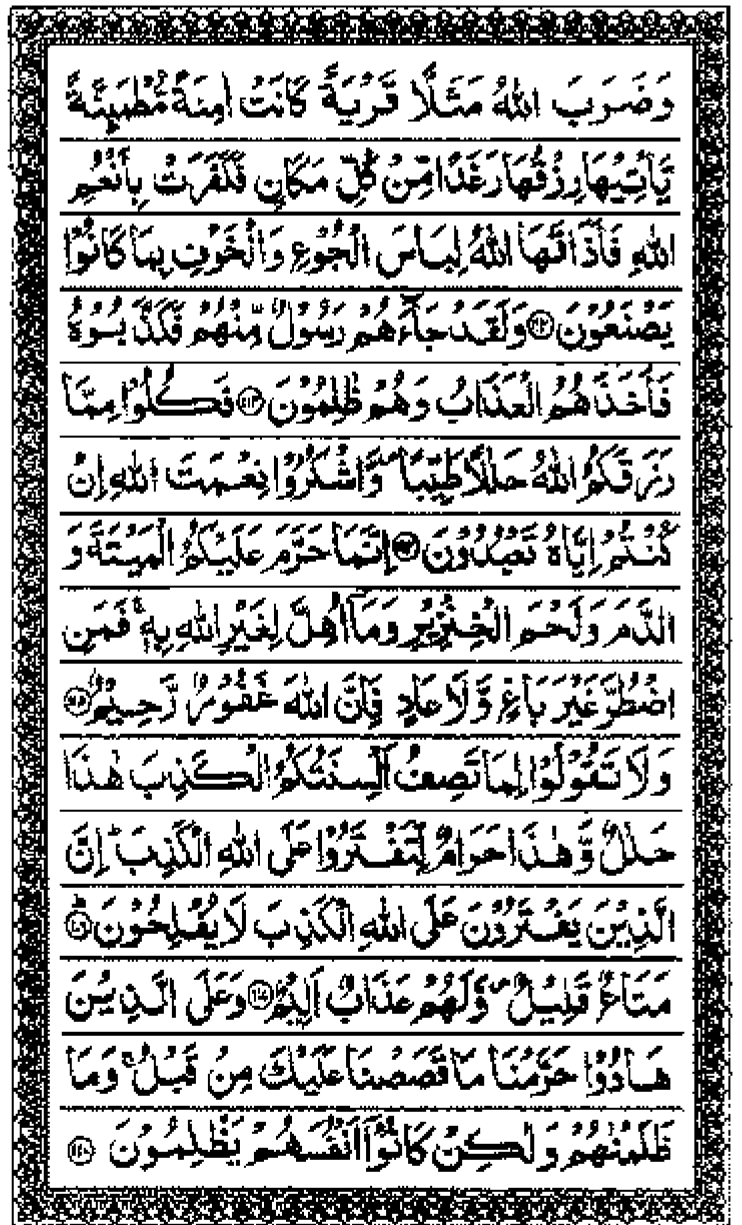 وَضَرَبَ اللهُ مَثَلًا قَرْيَةً كَانَتْ اٰمِنَةً مُّطْمَىِٕنَّةً
يَّاْتِيْهَا رِزْقُهَا رَغَدًا مِّنْ كُلِّ مَكَانٍ فَكَفَرَتْ بِاَنْعُمِ
اللهِ فَاَذَاقَهَا اللهُ لِبَاسَ الْجُوْعِ وَالْخَوْفِ بِمَا كَانُوْا
يَصْنَعُوْنَ ۝۱۱۲ وَلَقَدْ جَآءَهُمْ رَسُوْلٌ مِّنْهُمْ فَكَذَّبُوْهُ
فَاَخَذَهُمُ الْعَذَابُ وَهُمْ ظٰلِمُوْنَ ۝۱۱۳ فَكُلُوْا مِمَّا
رَزَقَكُمُ اللهُ حَلٰلًا طَيِّبًا ۪ وَّاشْكُرُوْا نِعْمَتَ اللهِ اِنْ
كُنْتُمْ اِيَّاهُ تَعْبُدُوْنَ ۝۱۱۴ اِنَّمَا حَرَّمَ عَلَيْكُمُ الْمَيْتَةَ وَ
الدَّمَ وَلَحْمَ الْخِنْزِيْرِ وَمَاۤ اُهِلَّ لِغَيْرِ اللهِ بِهٖ ۚ فَمَنِ
اضْطُرَّ غَيْرَ بَاغٍ وَّلَا عَادٍ فَاِنَّ اللهَ غَفُوْرٌ رَّحِيْمٌ ۝۱۱۵
وَلَا تَقُوْلُوْا لِمَا تَصِفُ اَلْسِنَتُكُمُ الْكَذِبَ هٰذَا
حَلٰلٌ وَّهٰذَا حَرَامٌ لِّتَفْتَرُوْا عَلَى اللهِ الْكَذِبَ ؕ اِنَّ
الَّذِيْنَ يَفْتَرُوْنَ عَلَى اللهِ الْكَذِبَ لَا يُفْلِحُوْنَ ۝۱۱۶ؕ
مَتَاعٌ قَلِيْلٌ ۪ وَّلَهُمْ عَذَابٌ اَلِيْمٌ ۝۱۱۷ وَعَلَى الَّذِيْنَ
هَادُوْا حَرَّمْنَا مَا قَصَصْنَا عَلَيْكَ مِنْ قَبْلُ ۚ وَمَا
ظَلَمْنٰهُمْ وَلٰكِنْ كَانُوْۤا اَنْفُسَهُمْ يَظْلِمُوْنَ ۝۱۱۸